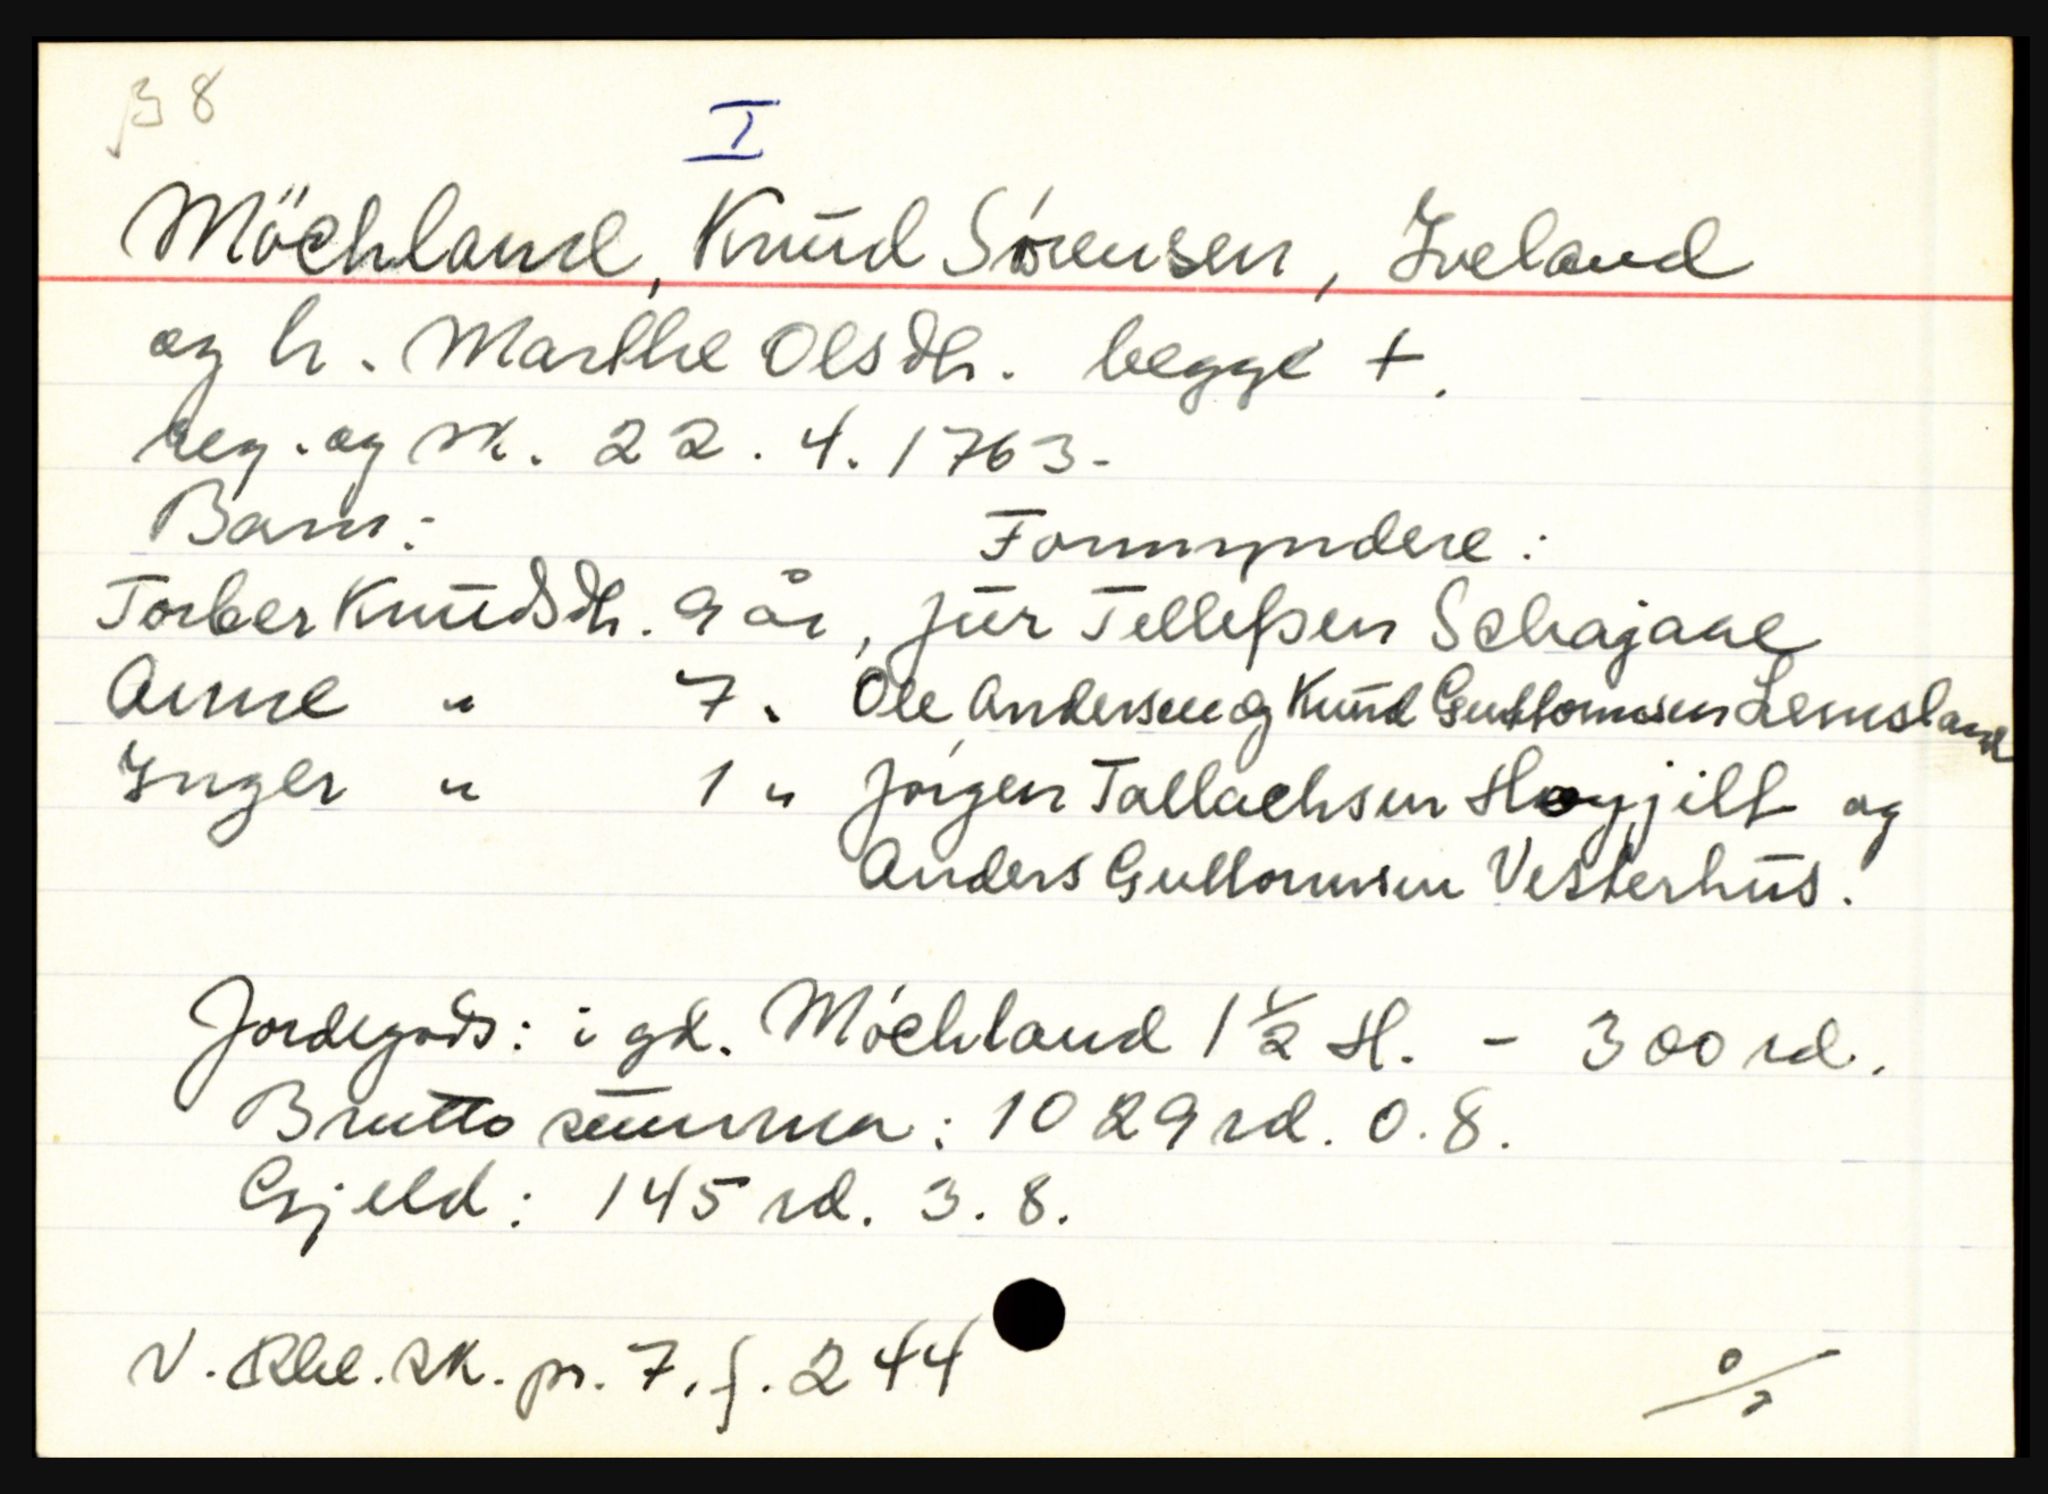 β 8
I
Möchland, Knud Sörensen, Iveland
og h. Marthe Olsdtr. begge +.
reg. og sk. 22. 4. 1763.
Barn: Formyndere:
Torber Knudsdtr. 9 år, Jur Tellefsen Schajaae
Anne " 7 " Ole Andersen og Knud Guttormsen Lemsland
Inger " 1 " Jörgen Tallachsen Høyjilt og
Anders Guttormsen Vesterhus.
Jordegods: i gd. Möchland 1½ H. - 300 rd.
Brutto summa: 1029 rd. 0. 8.
Gjeld: 145 rd. 3. 8.
V. Rbl. sk. pr. 7, f. 244